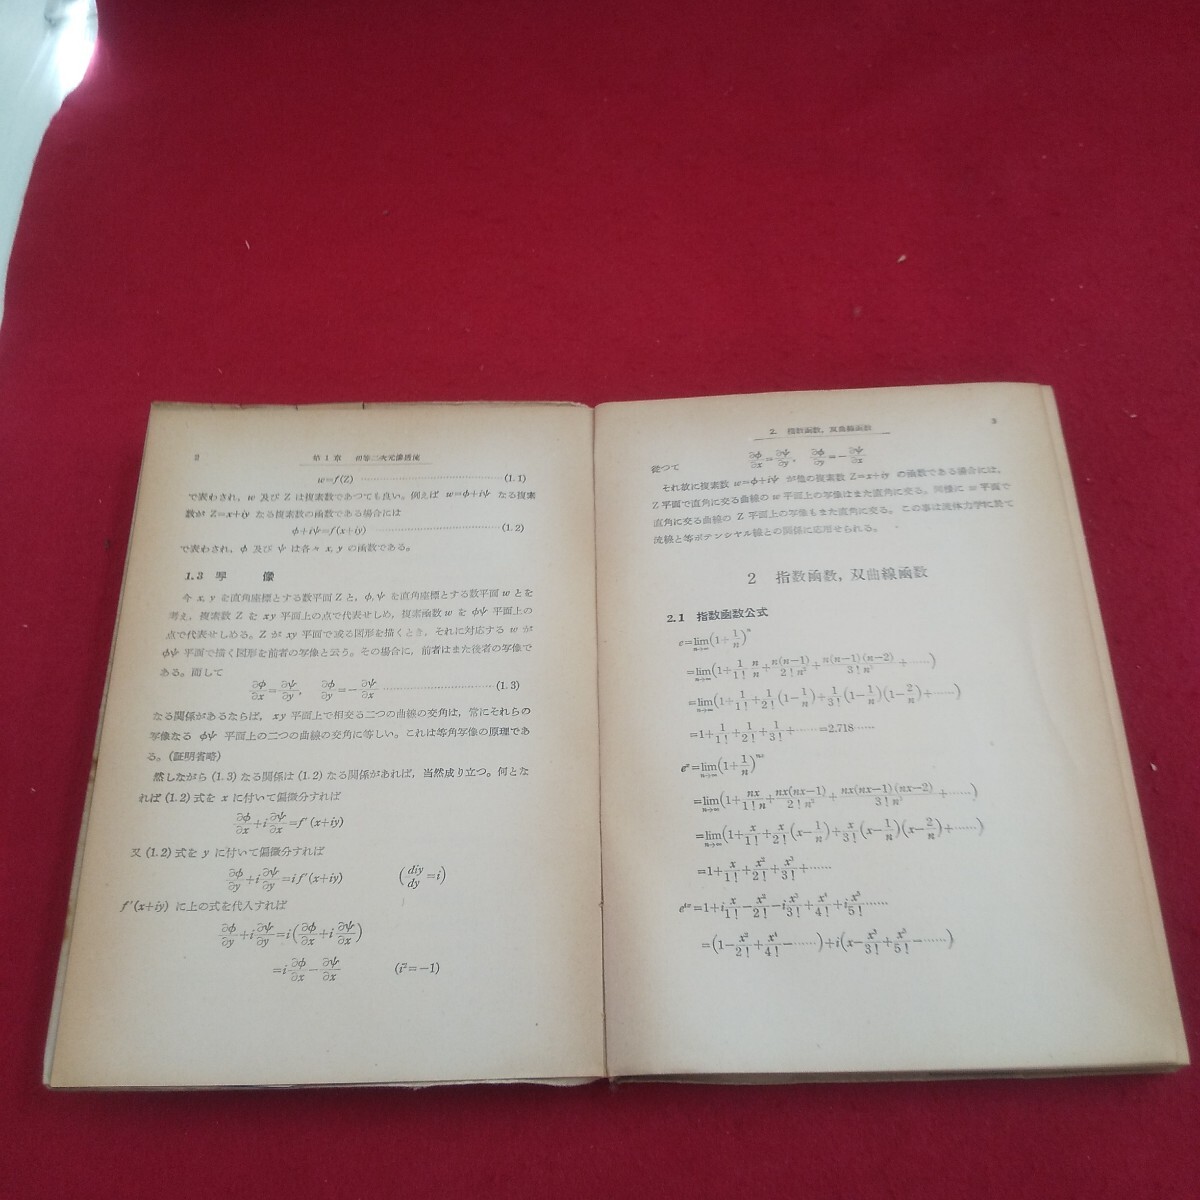 2 第1章 初等二次元滲透流
w=f(Z) ……………………………………(1.1)
で表わされ, w 及び Z は複素数であつても良い。例えば w=φ+iψ なる複素
数が Z=x+iy なる複素数の函数である場合には
φ+iψ=f(x+iy) ……………………………(1.2)
で表わされ, φ 及び ψ は各々 x, y の函数である。
1.3 写 像
今 x, y を直角座標とする数平面 Z と, φ, ψ を直角座標とする数平面 w とを
考え, 複素数 Z を xy 平面上の点で代表せしめ, 複素函数 w を φψ 平面上の
点で代表せしめる。Z が xy 平面で或る図形を描くとき, それに対応する w が
φψ 平面で描く図形を前者の写像と云う。その場合に, 前者はまた後者の写像で
ある。而して
∂φ/∂x=∂ψ/∂y, ∂φ/∂y=−∂ψ/∂x ……………………………(1.3)
なる関係があるならば, xy 平面上で相交る二つの曲線の交角は, 常にそれらの
写像なる φψ 平面上の二つの曲線の交角に等しい。これは等角写像の原理であ
る。(証明省略)
然しながら (1.3) なる関係は (1.2) なる関係があれば, 当然成り立つ。何とな
れば (1.2) 式を x に付いて偏微分すれば
∂φ/∂x+i∂ψ/∂x=f′(x+iy)
又 (1.2) 式を y に付いて偏微分すれば
∂φ/∂y+i∂ψ/∂y=if′(x+iy) (diy/dy=i)
f′(x+iy) に上の式を代入すれば
∂φ/∂y+i∂ψ/∂y=i(∂φ/∂x+i∂ψ/∂x)
=i∂φ/∂x−∂ψ/∂x (i²=−1)
2. 指数函数, 双曲線函数 3
従つて ∂φ/∂x=∂ψ/∂y, ∂φ/∂y=−∂ψ/∂x
それ故に複素数 w=φ+iψ が他の複素数 Z=x+iy の函数である場合には,
Z 平面で直角に交る曲線の w 平面上の写像はまた直角に交る。同様に w 平面で
直角に交る曲線の Z 平面上の写像もまた直角に交る。この事は流体力学に於て
流線と等ポテンシヤル線との関係に応用せられる。
2 指数函数, 双曲線函数
2.1 指数函数公式
e=lim n→∞(1+1/n)ⁿ
=lim n→∞(1+1/1! n/n+n(n−1)/2!n²+n(n−1)(n−2)/3!n³+……)
=lim n→∞(1+1/1!+1/2!(1−1/n)+1/3!(1−1/n)(1−2/n)+……)
=1+1/1!+1/2!+1/3!+……=2.718……
eˣ=lim n→∞(1+1/n)ⁿˣ
=lim n→∞(1+nx/1!n+nx(nx−1)/2!n²+nx(nx−1)(nx−2)/3!n³+……)
=lim n→∞(1+x/1!+x/2!(x−1/n)+x/3!(x−1/n)(x−2/n)+……)
=1+x/1!+x²/2!+x³/3!+……
eⁱˣ=1+ix/1!−x²/2!−ix³/3!+x⁴/4!+ix⁵/5!……
=(1−x²/2!+x⁴/4!−……)+i(x−x³/3!+x⁵/5!−……)